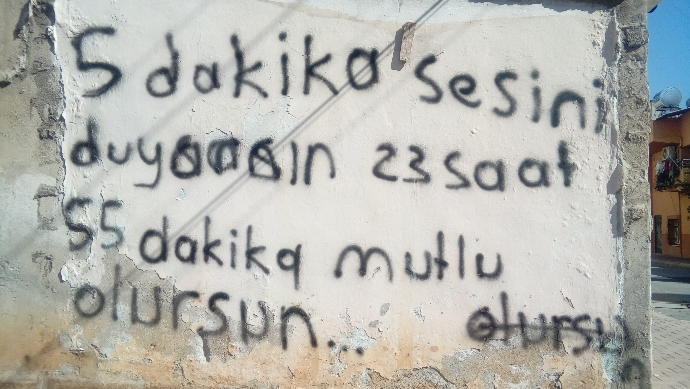 5 dakika sesini
duyarsın 23 saat
55 dakika mutlu
olursun... olursun